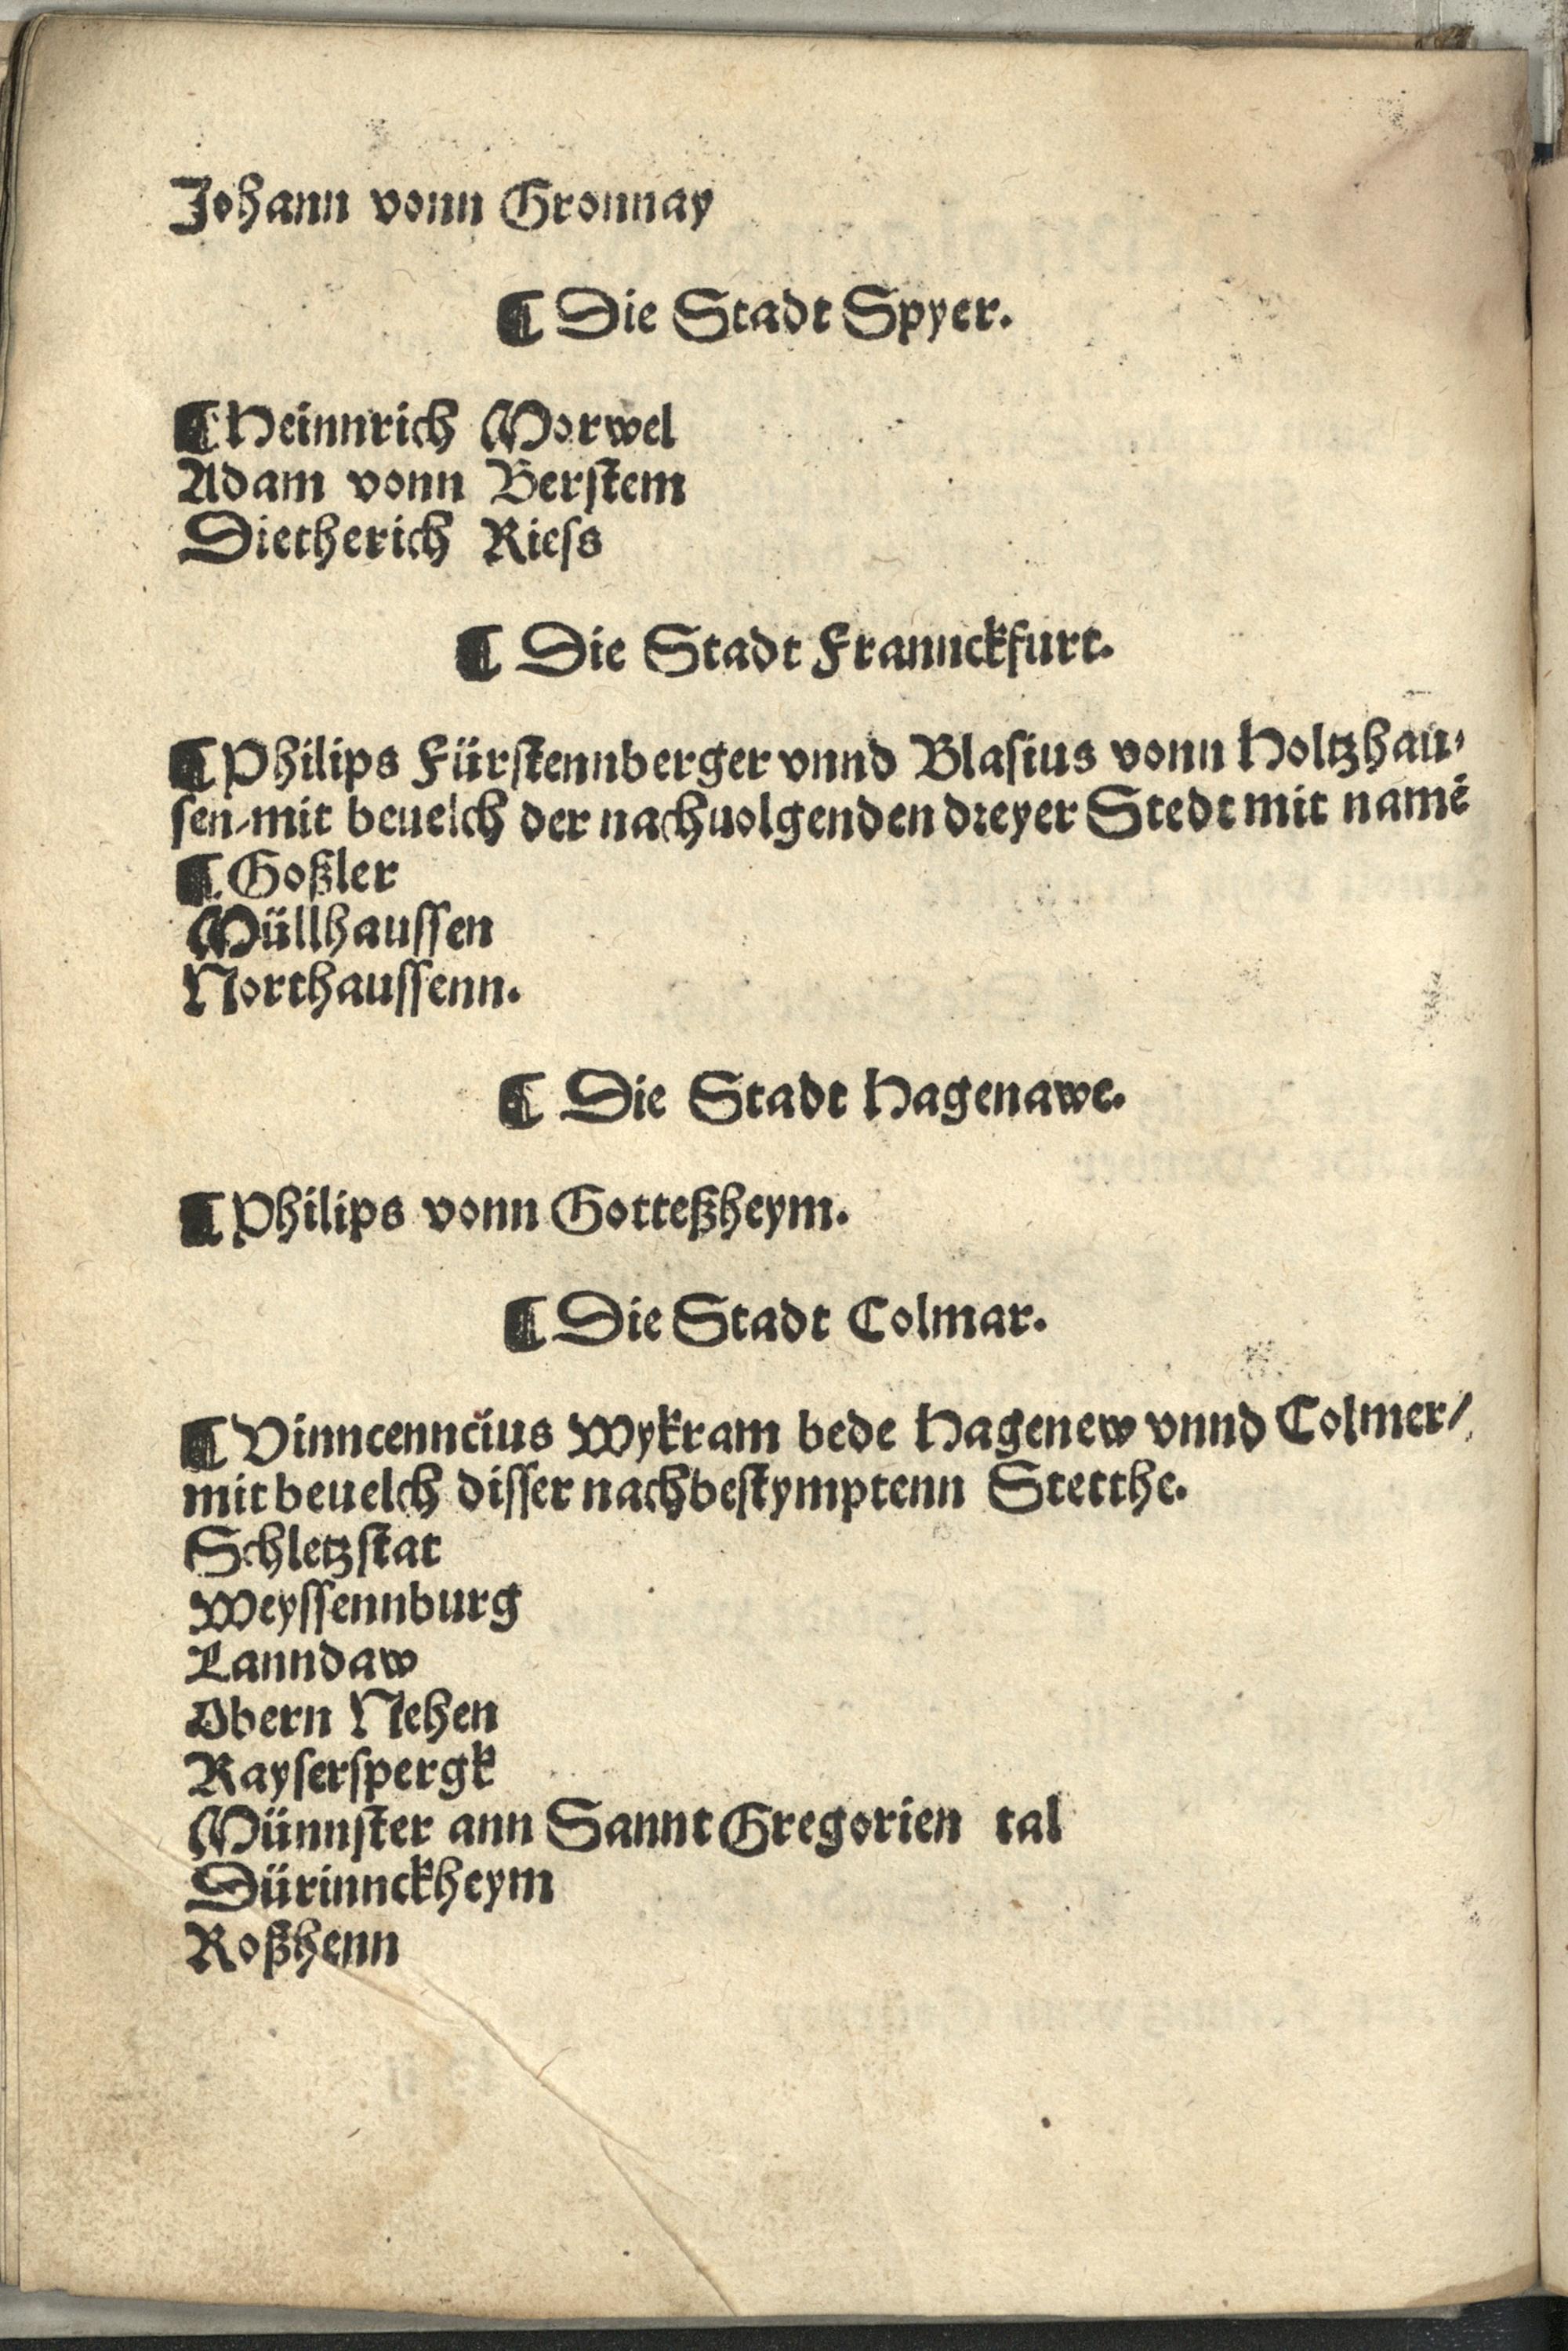 Johann vonn Gronnay
¶ Die Stadt Spyer.
¶ Heinnrich Morwel
Adam vonn Berſtem
Dietherich Rieſs
¶ Die Stadt Frannckfurt.
¶ Philips Fürſtennberger vnnd Blaſius vonn Holtzhau⸗
ſen/mit beuelch der nachuolgenden dꝛeyer Stedt mit namē
¶ Goßler
Müllhauſſen
Northauſſenn.
¶ Die Stadt Hagenawe.
¶ Philips vonn Gotteßheym.
¶ Die Stadt Colmar.
¶ Vinncenncius Wykram bede Hagenew vnnd Colmer/
mit beuelch diſſer nachbeſtymptenn Stetthe.
Schletzſtat
Weyſſennburg
Lanndaw
Obern Nehen
Kayſerſpergk
Münnſter ann Sannt Gregorien tal
Dürinnckheym
Roßhenn